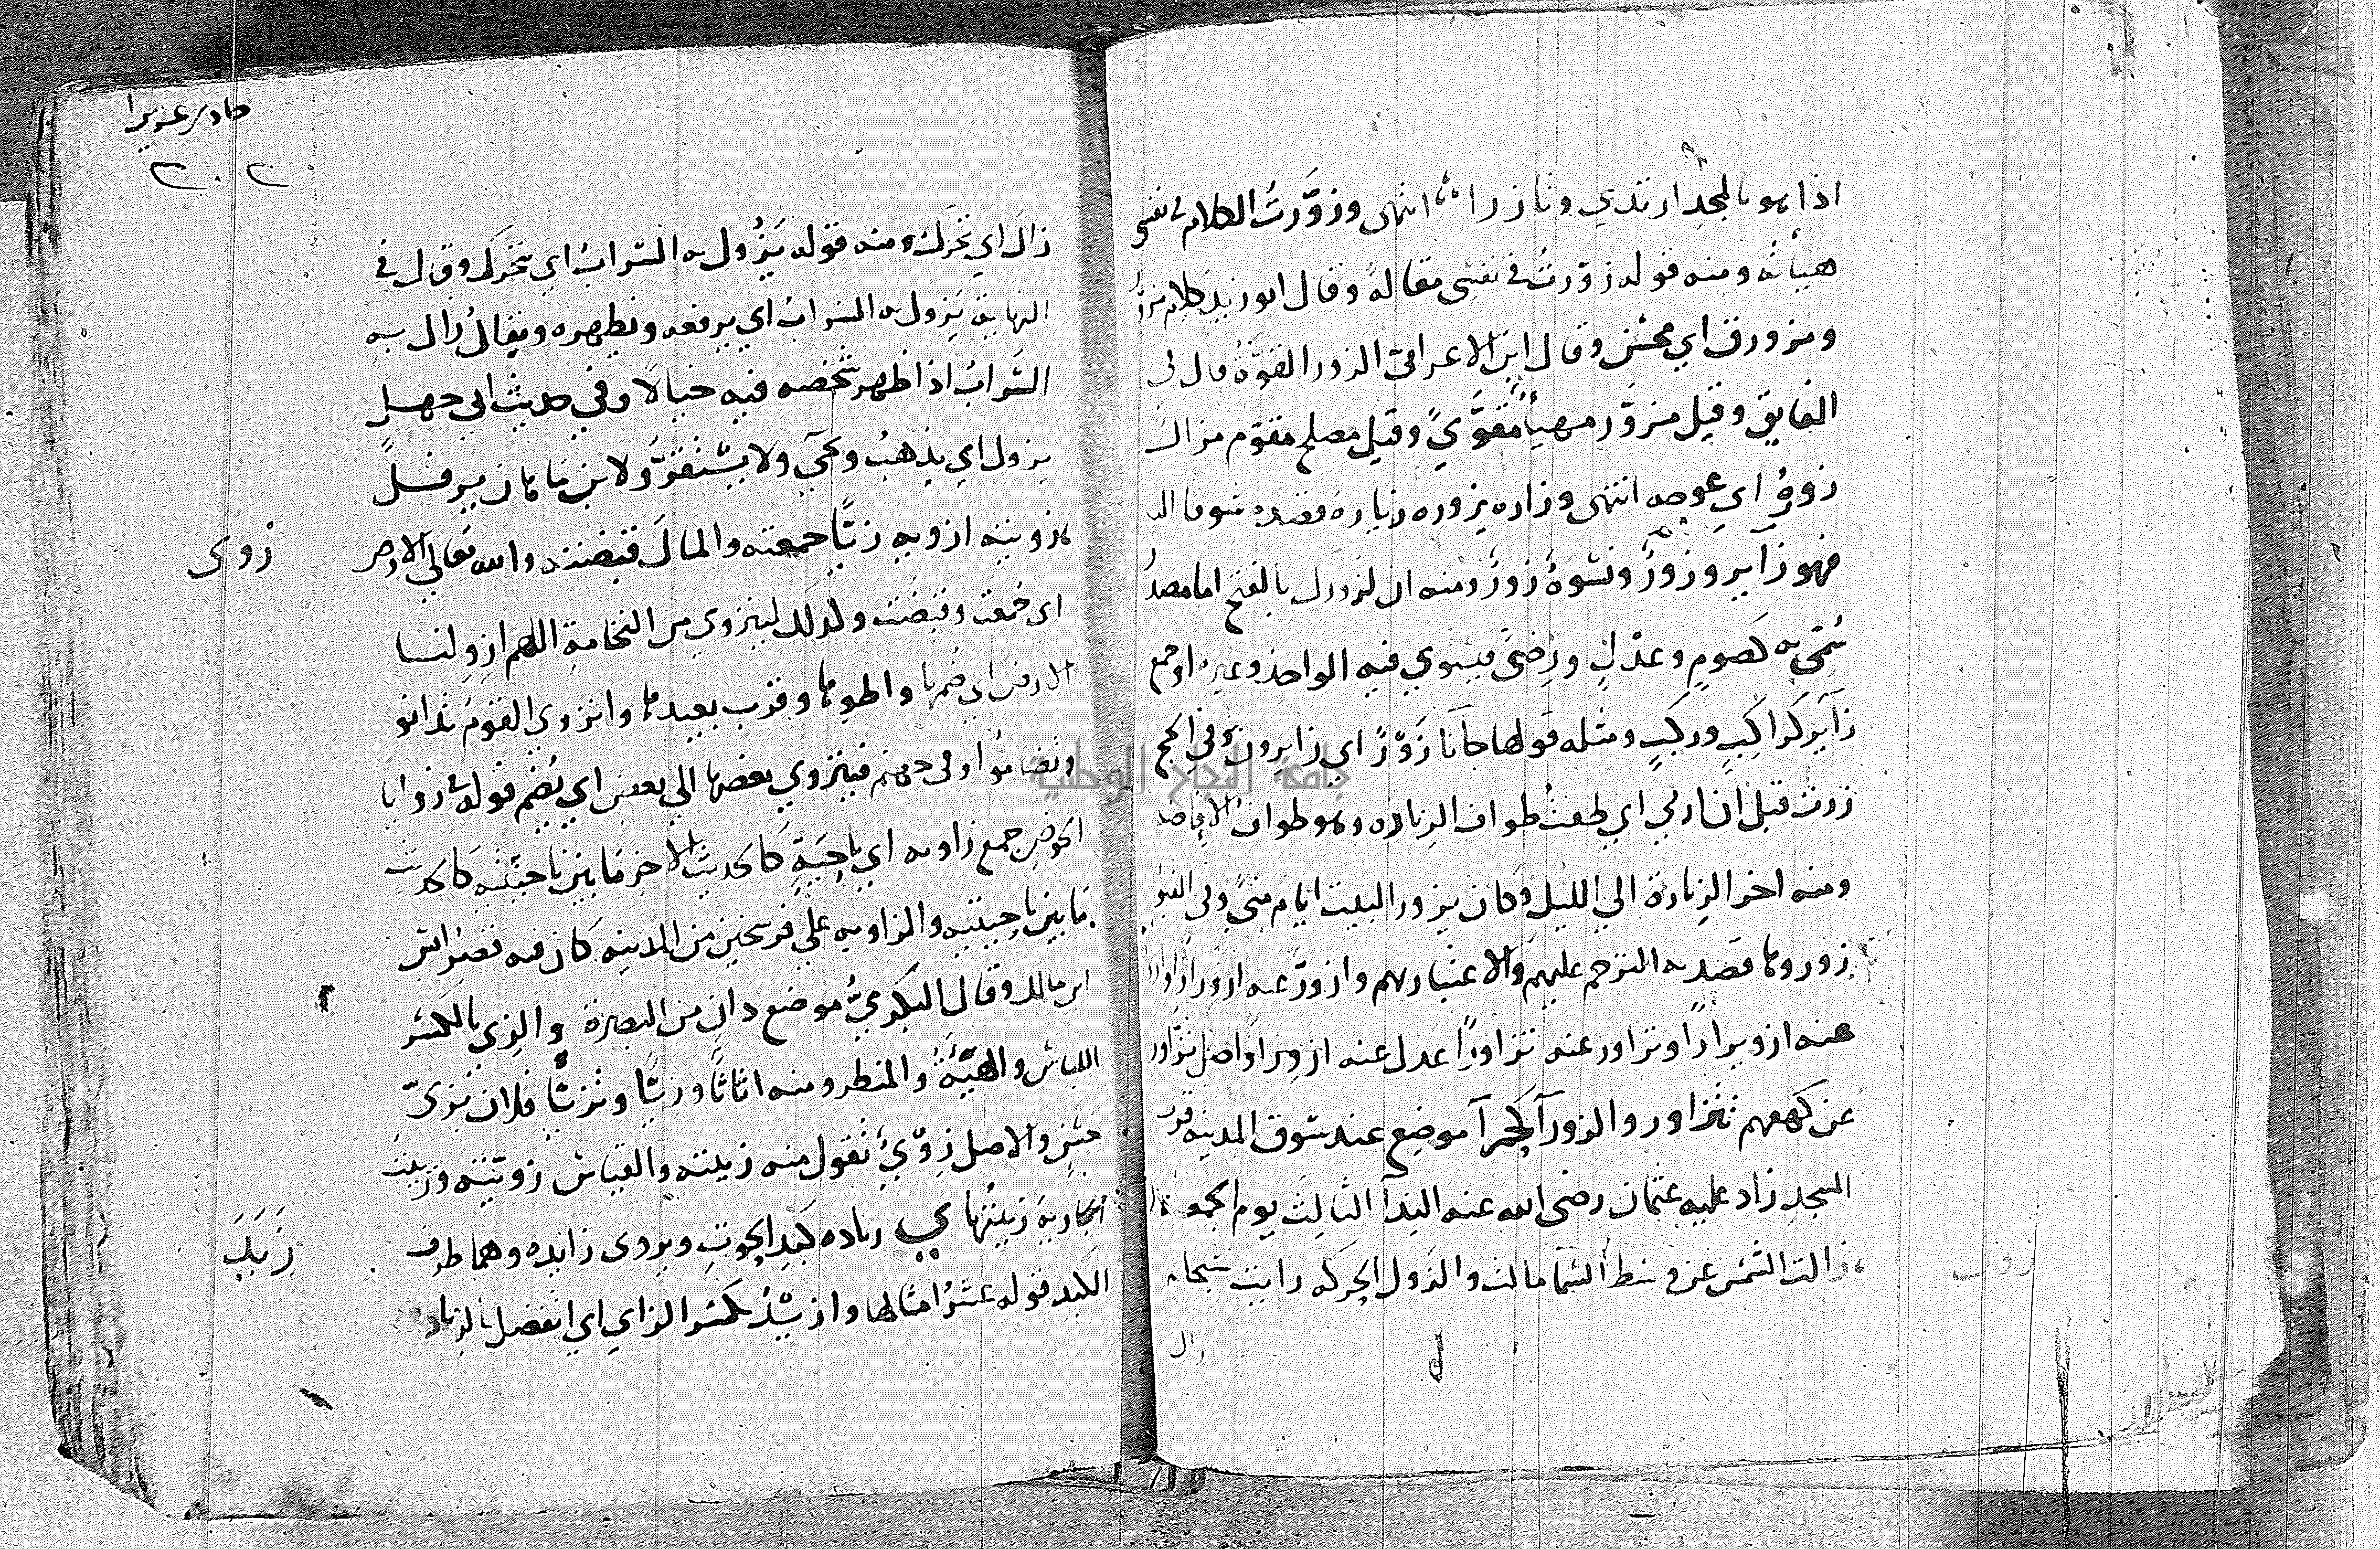 اذا هو بالمجد ارتدي وتازرا انتهى وزَوَّرتُ الكلام في نفسي
هيأته ومنه قوله زوّرتُ في نفسي مقالةً وقال ابو زيد كلام مزوَّر
ومزورق اي محسّن وقال ابن الاعرابيّ الزور القوّةُ قال في
الفايق وقيل مزوَّر مهيأ مُقَوَّيً وقيل مصلح مقوّم مزال
زوره اي عوجه انتهى وزاره يزوره زيارة قصده شوقا اليه
فهو زآير وزَورٌ ونسْوةٌ زورٌ ومنه ان لزورك بالفتح اما مصدرٌ
سُمّي به كصومٍ وعدْلٍ ورِضىً فيستوي فيه الواحد وغيره او جمع
زآيرٍ كراكِبٍ وركبٍ ومثله قولها جآنا زَوْرٌ اي زايرون وفي الحج
زرت قبل ان ارمي اي طفتُ طواف الزياره وهو طواف الافاضه
ومنه اخر الزيارة الي الليل وكان يزور البيت ايام منىً وفي القبور
زوروها قصد به الترحم عليهم والاعتبار بهم وازورّ عنه ازوِراراً وازوارّ
عنه ازويراراً وتزاور عنه تزاوراً عدل عنه ازوِراراً اصل تزاور
عن كهفهم تتزاور والزورآ كحمرآ موضع عند سوق المدينه قرب
المسجد زاد عليه عثمان رضي الله عنه الندآ الثالث يوم الجمعة
زالت الشمس عن وسط السمآ مالت والزول الحركه رايت شبحا
زول
زال
حادي عشرين
٢٠٢
زالَ اي تحرك ومنه قوله يَزُول به السراب اي يتحرك وقال في
النهاية يزول به السراب اي يرفعه ويظهره ويقالُ زال به
السّرابُ اذا ظهر شخصه فيه خيالاً وفي حديث ابي جهل
يزول اي يذهبُ ويجيّ ولا يستقرّ ولابن ماهان يرفل
زويته ازويه زيًّا جمعته والمالَ قبضته والله تعالي الارض
زوى
اي جمعت وقبضت ولذلك لينزوي من النخامة اللهم ازوِ لنا
الارض اي ضُمها واطوِها وقرب بعيدها وانزوي القومُ تدانو
وتضامُّوا وفي جهنم فينزوي بعضها الي بعض اي يُضم قوله زوايا
الحوض جمع زاويه اي ناحيةٍ كالحديث الاخر ما بين ناحيتيه كالحديث
ما بين ناحيتيه والزاويه علي فرسخين من المدينه كان فيه قصرُ انس
ابن مالك وقال البكريُّ موضع دانٍ من البصرة والزي بالكسر
اللباس والهيئة والمنظر ومنه اثاثاً وزيًّا وتزيّا فلان بزىّ
حسنٍ والاصل زِوْيٌ تقول منه زييته والقياس زويته وزييتُ
الجارية زييتُها ي زياده كبد الحوت ويروى زايده وهما طرف
زَيَدَ
الكبد قوله عشرُ امثالها وازيْدُ بكسر الزاي اي اتفضل بالزياده
جامعة النجاح الوطنية